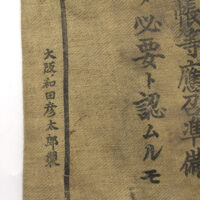 帳等應及準備
必要ト認ムルモ
大阪和田彦太郎製